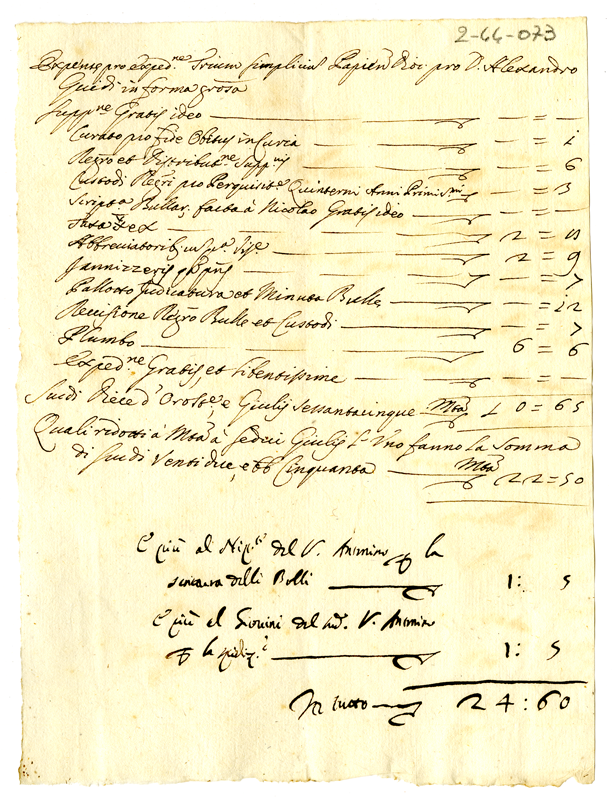 2-44-073
Expense pro exped.ne Trium simplicium Papien Dioc. pro D. Alexandro
Guidi in forma grossa
Supp.ne Gratis ideo — = —
Curato pro fide Obitus in Curia — = 1
Regro et Distribut.ne Supp.nis — = 6
Custodi Regri pro Perquisit.e Quinterni Anni Primi — = 3
Script.a Bullar. facta à Nicolao Gratis ideo — = —
Taxa 2 =
Abbreviatorib. 2 = 9
Jannizzeris — = 7
Pallotto Judicatura et Minuta Bulle — = 12
Recisione Regro Bulle et Custodi — = 7
Plumbo 6 = 6
Exped.ne Gratis, et libentissime — = —
Scudi Diece d'Oro e Giulij sessantacinque Mta 10 = 65
Quali ridotti à Mta à sedici Giulij l'Uno fanno la somma
di Scudi Ventidue, e bb Cinquanta Mta 22=50
E più al del V. la
delli Bolli 1: 5
E più al Giovini del V.
la 1: 5
In tutto 24:60